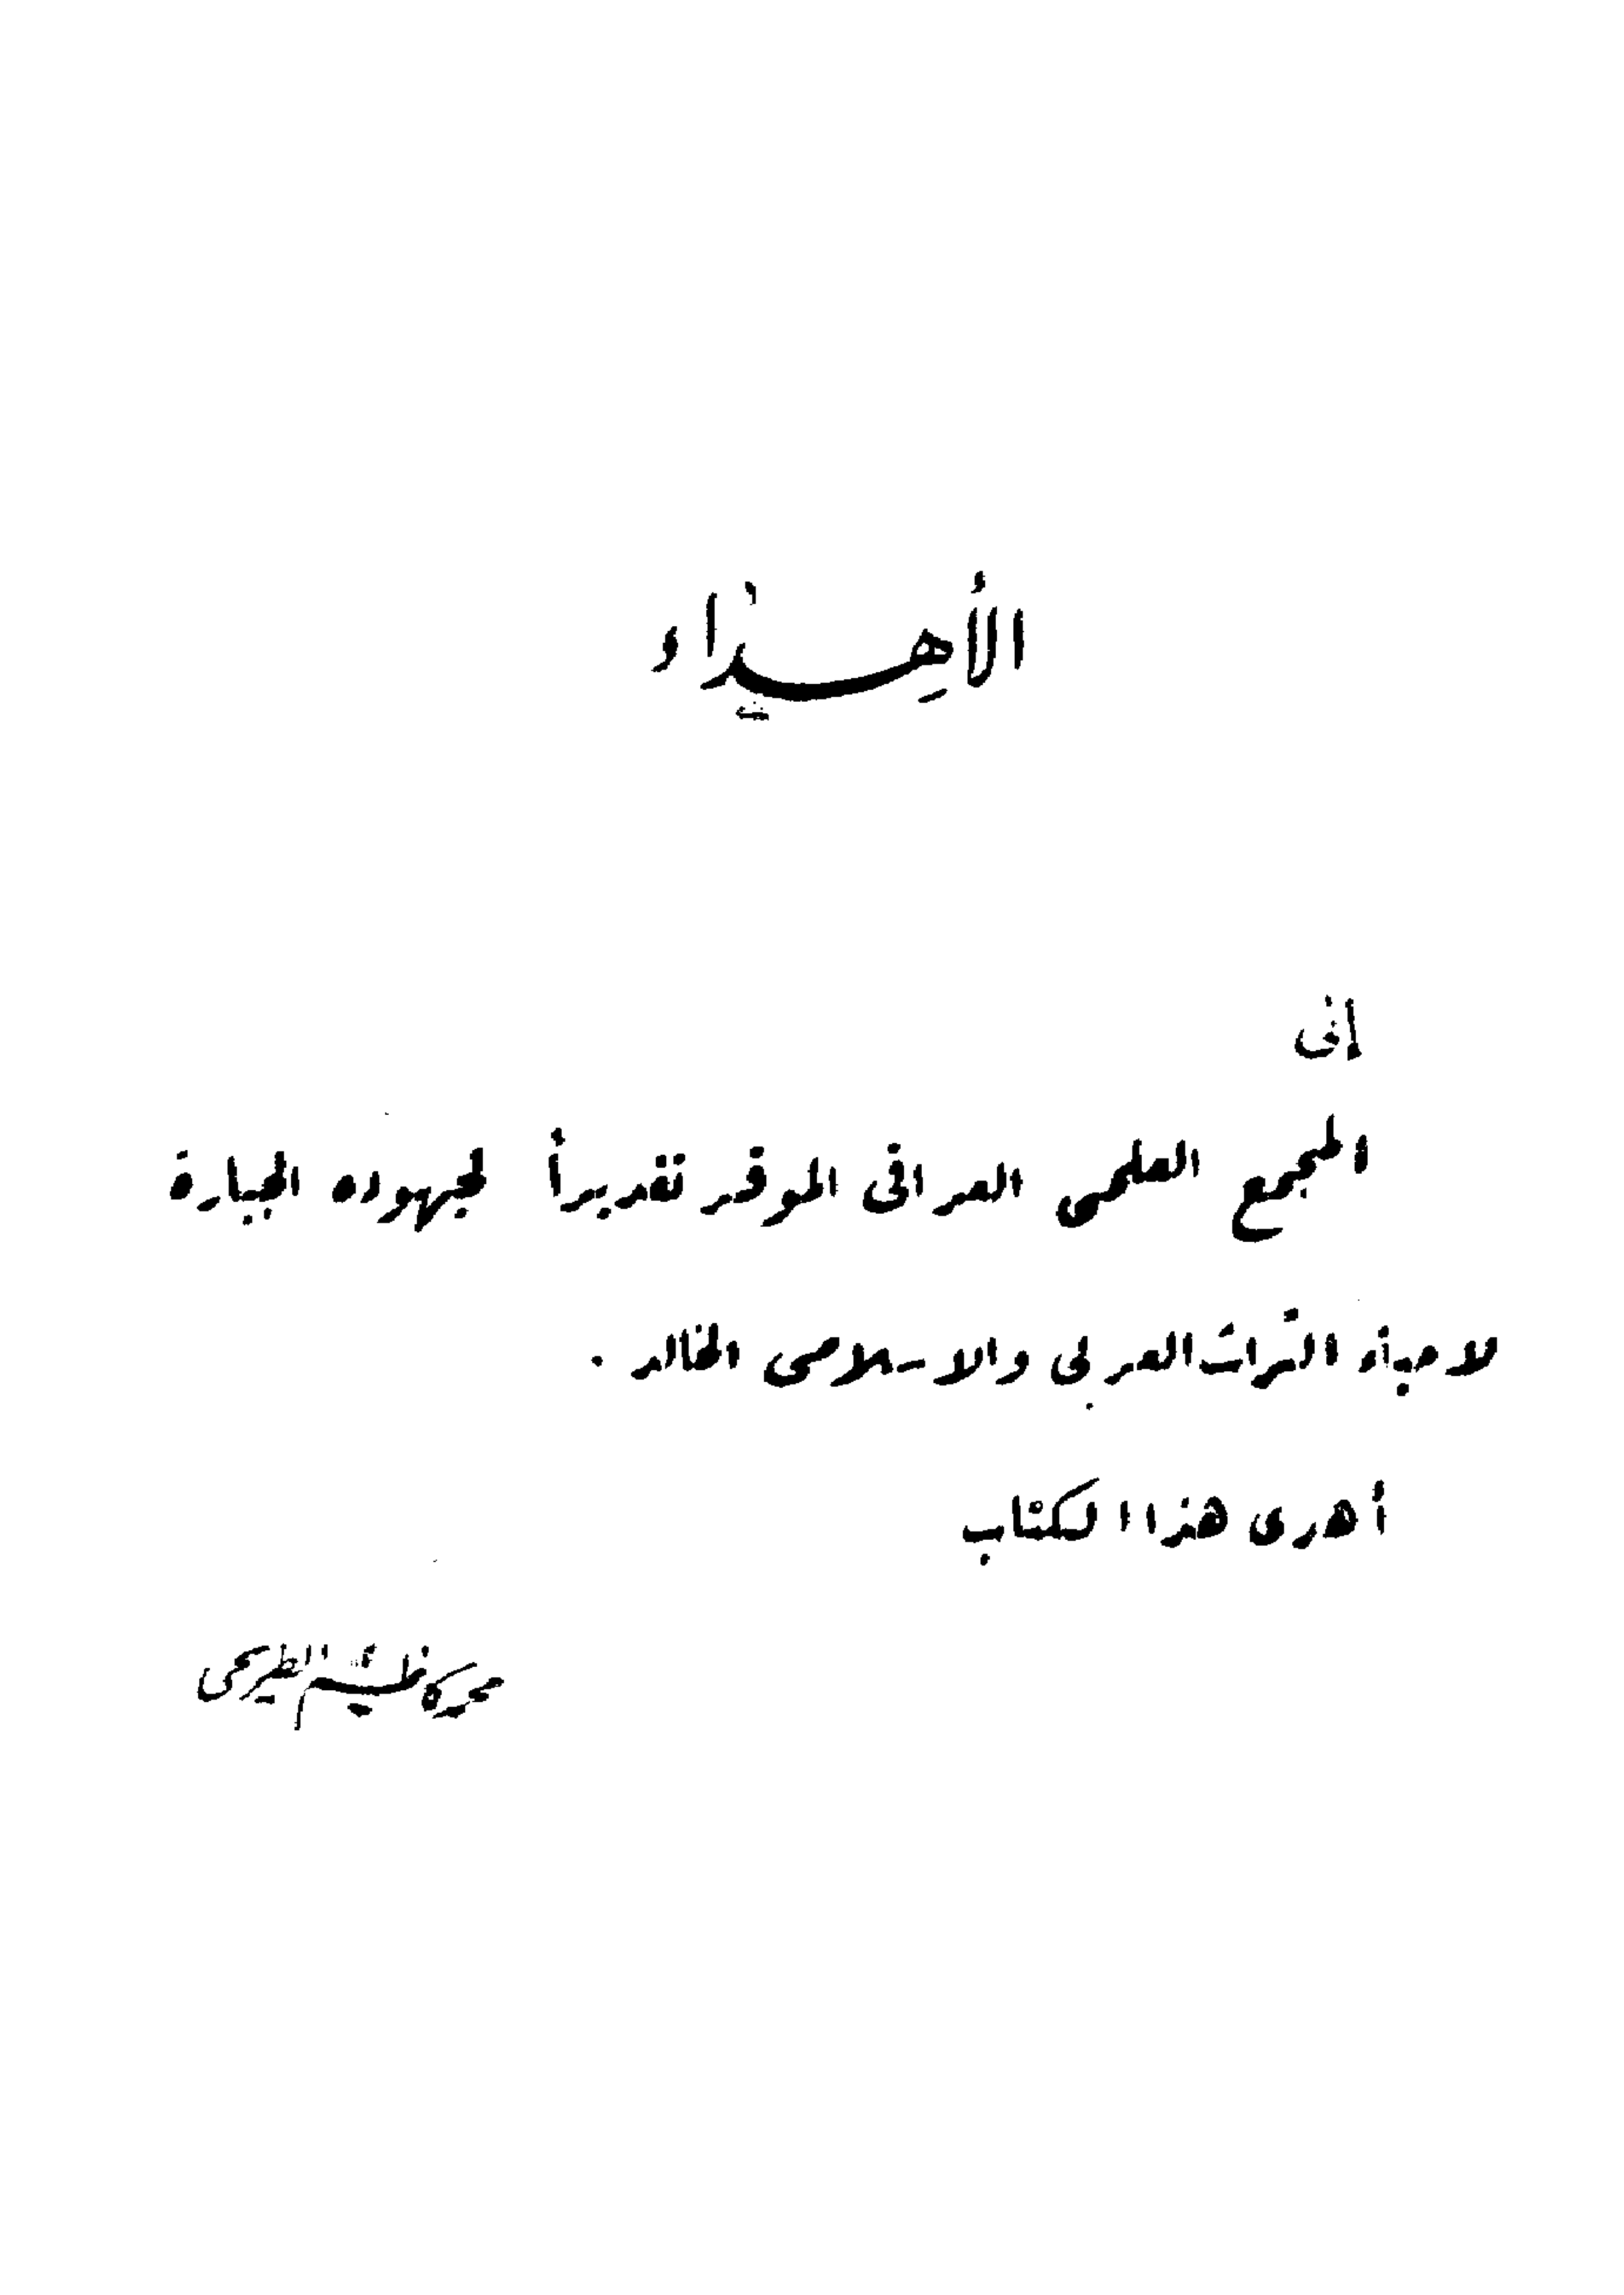 الأهداء
إلى
المجمع العلمي العراقي الموقر تقديراً لجهوده الجبارة
لاحياء التراث العربي والاسلامي الخالد .
أهدي هذا الكتاب
محمد كاظم الطريحي